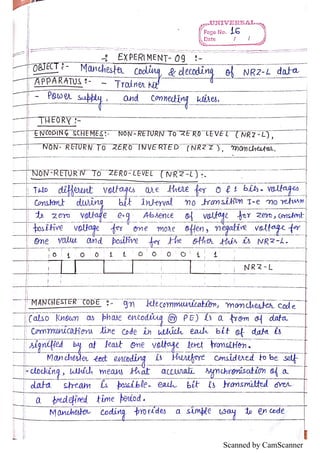 UNIVERSAL
Page No. 16
Date / /
-: EXPERIMENT-09 :-
OBJECT :- Manchester coding & decoding of NRZ-L data
APPARATUS :- - Trainer Kit
- Power supply, and connecting wires.
THEORY :-
ENCODING SCHEMES:- NON-RETURN TO ZERO LEVEL (NRZ-L),
NON-RETURN TO ZERO INVERTED (NRZI), manchester.
NON-RETURN TO ZERO-LEVEL (NRZ-L) :-
Two different voltages are there for 0 & 1 bits. voltages
Constant during bit Interval no transition I-e no return
to zero voltage e.g Absence of voltage for zero, constant
positive voltage for one more often, negative voltage for
one value and positive for the other this is NRZ-L.
0 1 0 0 1 1 0 0 0 1 1
NRZ-L
MANCHESTER CODE :- In telecommunication, manchester code
(also known as phase encoding PE) is a from of data
Communications line code in which each bit of data is
signified by at least one voltage level transition.
Manchester encoding is therefore considered to be self
-clocking, which means that accurate synchronisation of a
data stream is possible. each bit is transmitted over
a predefined time period.
Manchester coding provides a simple way to encode
Scanned by CamScanner